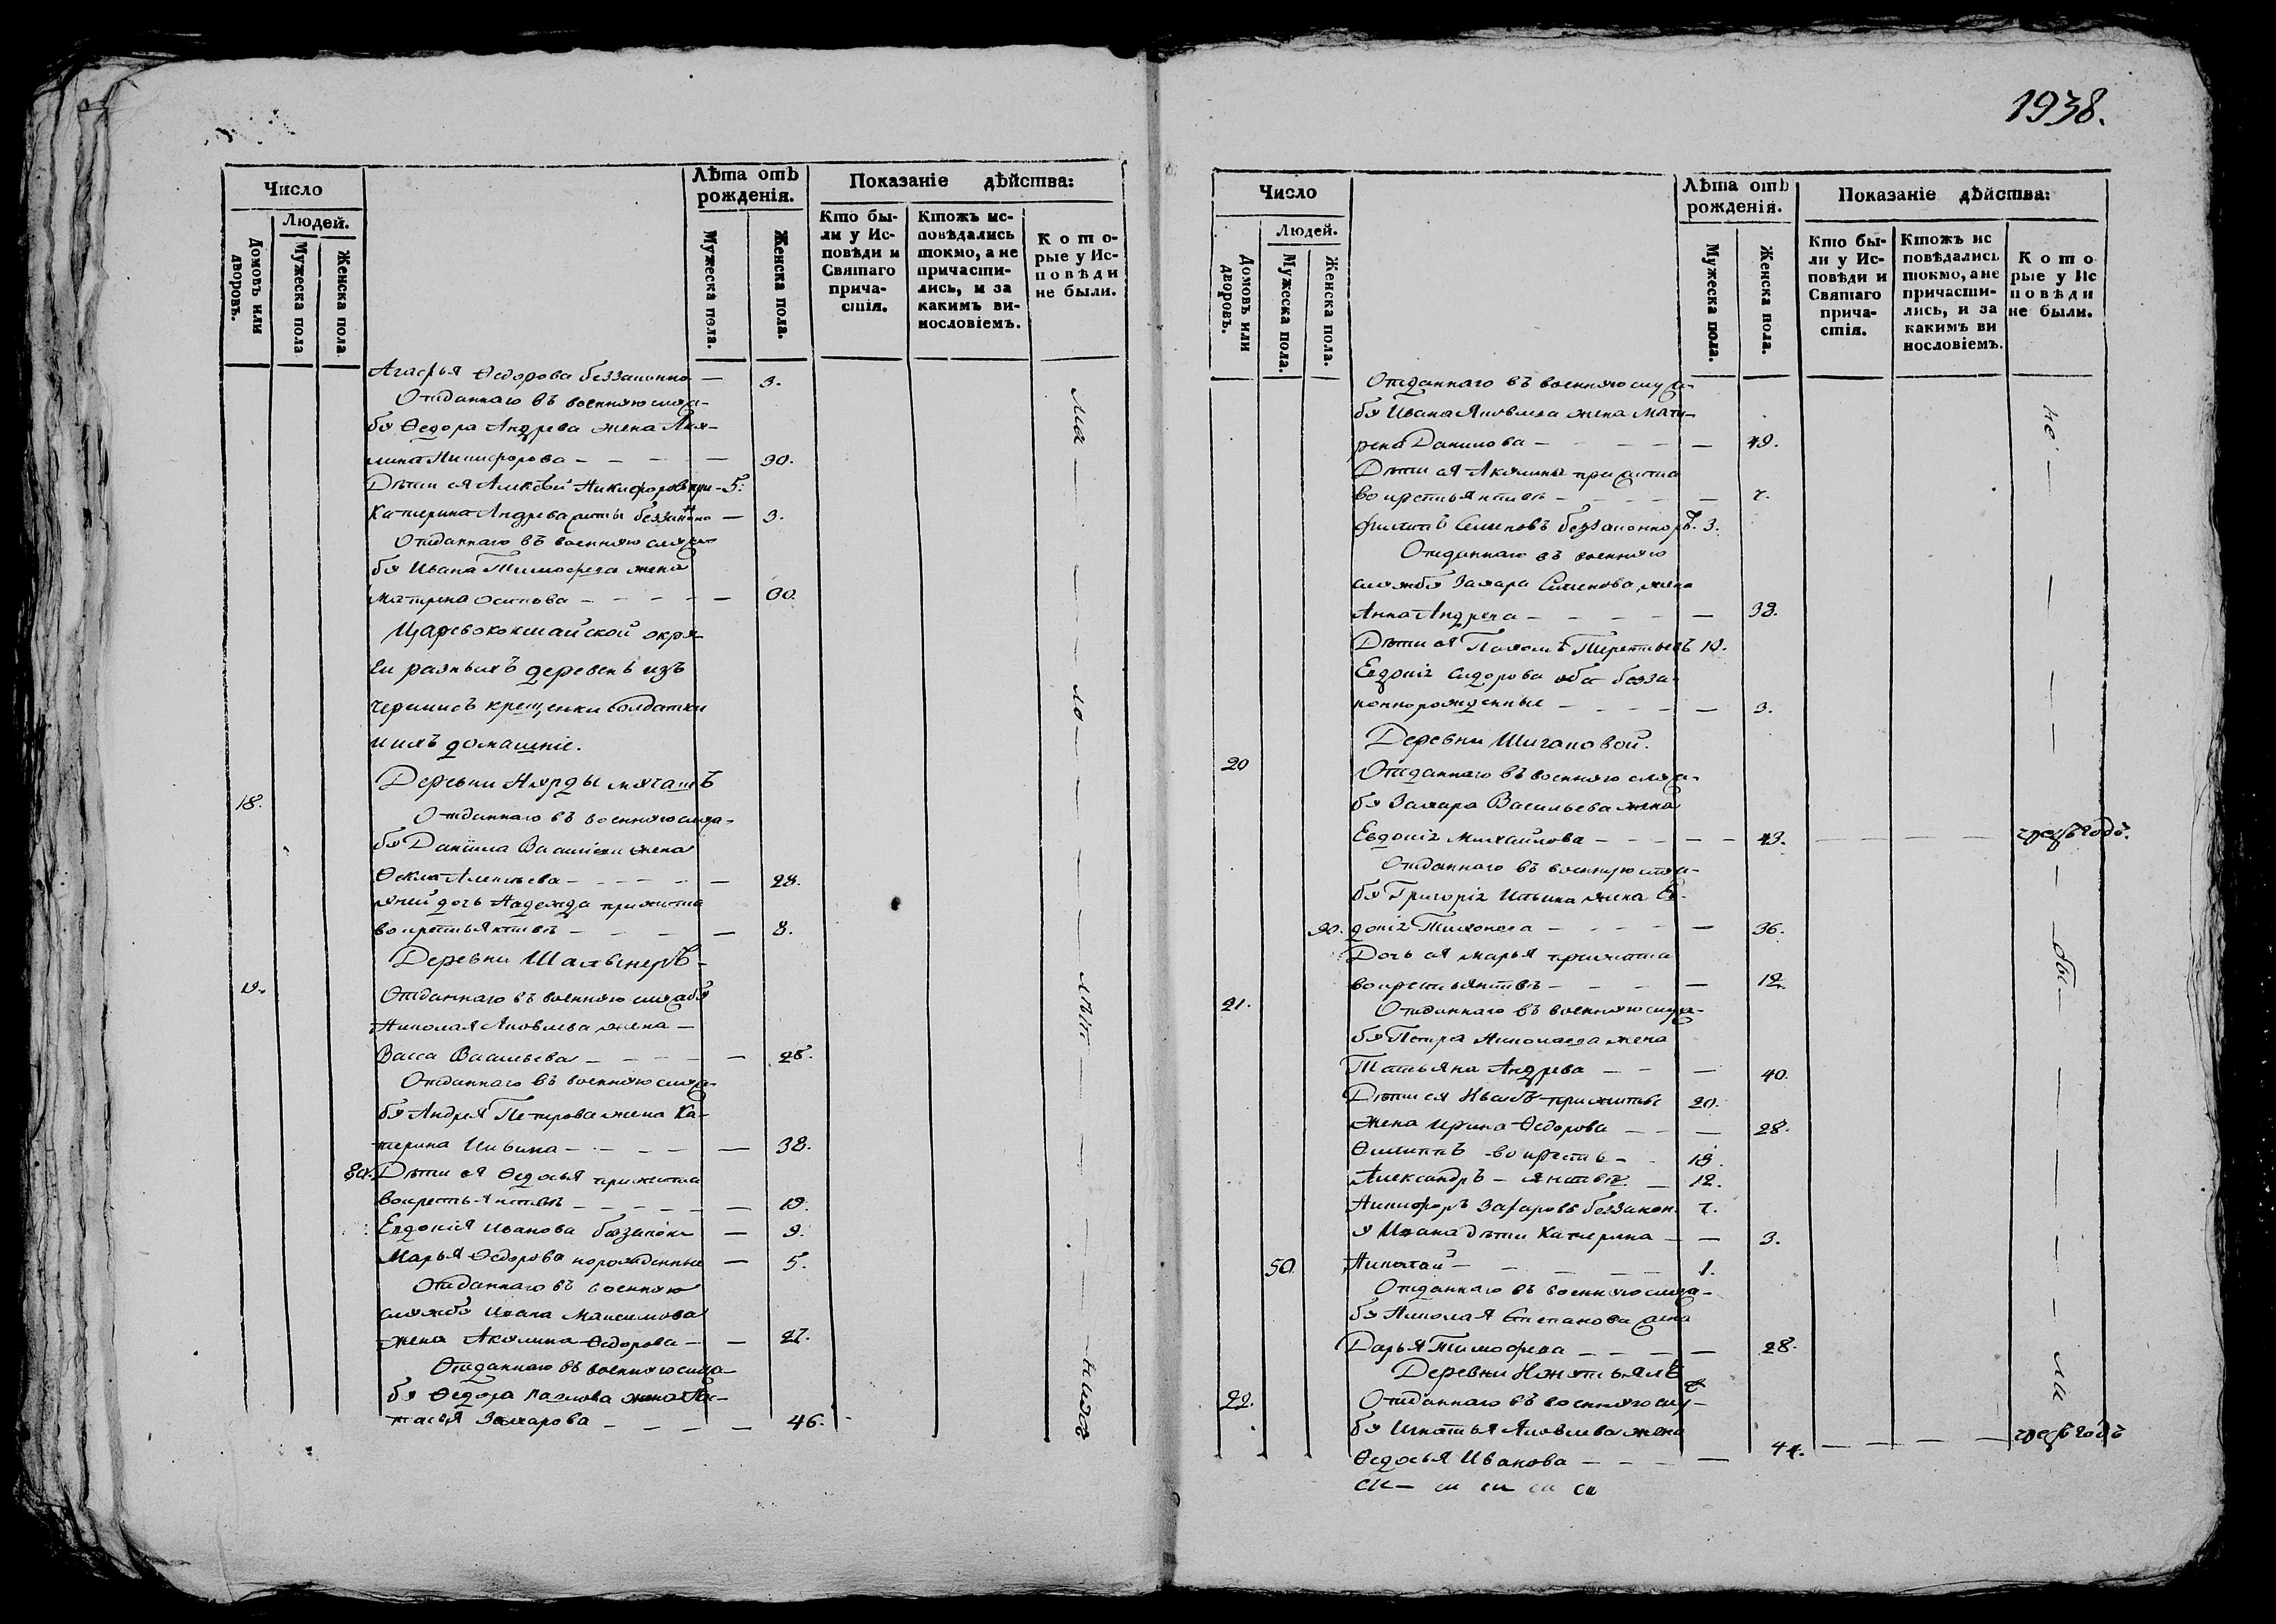 1938.
Число
Лѣта отъ рожденія.
Показаніе дѣйства:
Людей.
Домовъ или дворовъ.
Мужеска пола
Женска пола.
Мужеска пола.
Женска пола.
Кто были у Исповѣди и Святаго причастія.
Ктожъ исповѣдались токмо, а не причастились, и за какимъ винословіемъ.
Которые у Исповѣди не были.
Агафья Ѳедорова беззаконно — 3.
Отданнаго въ военную служ-
бу Ѳедора Андрева жена Аку-
лина Никифорова — 30.
Дѣти ея Алексѣй Никифоровъ при- 5.
Катерина Андрева житы беззаконно — 3.
Отданнаго въ военную служ-
бу Ивана Тимофеева жена
Матрена Осипова — 30.
Царевококшайской окру-
ги разныхъ деревень изъ
черемисъ крещенки солдатки
и ихъ домашніе.
Деревни Нурды мучашъ
18. Отданнаго въ военную служ-
бу Данiила Васильева жена
Ѳекла Алексѣева — 28.
у ней дочь Надежда прижита
во крестьянствѣ — 8.
Деревни Шаявенеръ
19. Отданнаго въ военную службу
Николая Яковлева жена —
Васса Васильева — 28.
Отданнаго въ военную служ-
бу Андрея Петрова жена Ка-
терина Ильина — 38.
80. Дѣти ея Ѳедосья прижита
во крестьянствѣ — 19.
Евдокія Иванова беззакон — 9.
Марья Ѳедорова норожденные — 5.
Отданнаго въ военную
службу Ивана Максимова
жена Акулина Ѳедорова — 27.
Отданнаго въ военную служ-
бу Ѳедора Павлова жена На-
тасья Захарова — 46.
ма — ло — лѣт — ніи
Число
Лѣта отъ рожденія.
Показаніе дѣйства:
Людей.
Домовъ или дворовъ.
Мужеска пола.
Женска пола.
Мужеска пола.
Женска пола.
Кто были у Исповѣди и Святаго причастія.
Ктожъ исповѣдались токмо, а не причастились, и за какимъ винословіемъ.
Которые у Исповѣди не были.
Отданнаго въ военную служ-
бу Ивана Яковлева жена Мат-
рена Данилова — 49.
Дѣти ея Акулина прижита
во крестьянствѣ — 7.
Филипъ Семеновъ беззаконнор. 3.
Отданнаго въ военную
службу Захара Семенова жена
Анна Андреева — 38.
Дѣти ея Пахомъ Терентьевъ 10.
Евдокія Сидорова оба безза-
коннорожденные — 3.
Деревни Шигановой.
20 Отданнаго въ военную служ-
бу Захара Васильева жена
Евдокія Михайлова — 43. — чрезъ годъ.
Отданнаго въ военную служ-
бу Григорія Ильина жена Ев-
90. докія Тихонова — 36.
Дочь ея Марья прижита
во крестьянствѣ — 12.
21. Отданнаго въ военную служ-
бу Петра Николаева жена
Татьяна Андрева — 40.
Дѣти ея Иванъ прижиты 20.
жена Ирина Ѳедорова — 28.
Филиппъ во кресть- 13.
Александръ — янствѣ — 12.
Никифоръ Захаровъ беззакон. 7.
у Ивана дѣти Катерина — 3.
50. Николай — 1.
Отданнаго въ военную служ-
бу Николая Степанова жена
Дарья Тимофеева — 28.
22. Отданнаго въ военную служ-
бу Игнатья Яковлева жена
Ѳедосья Иванова — 44. — чрезъ годъ
не — бы — ли